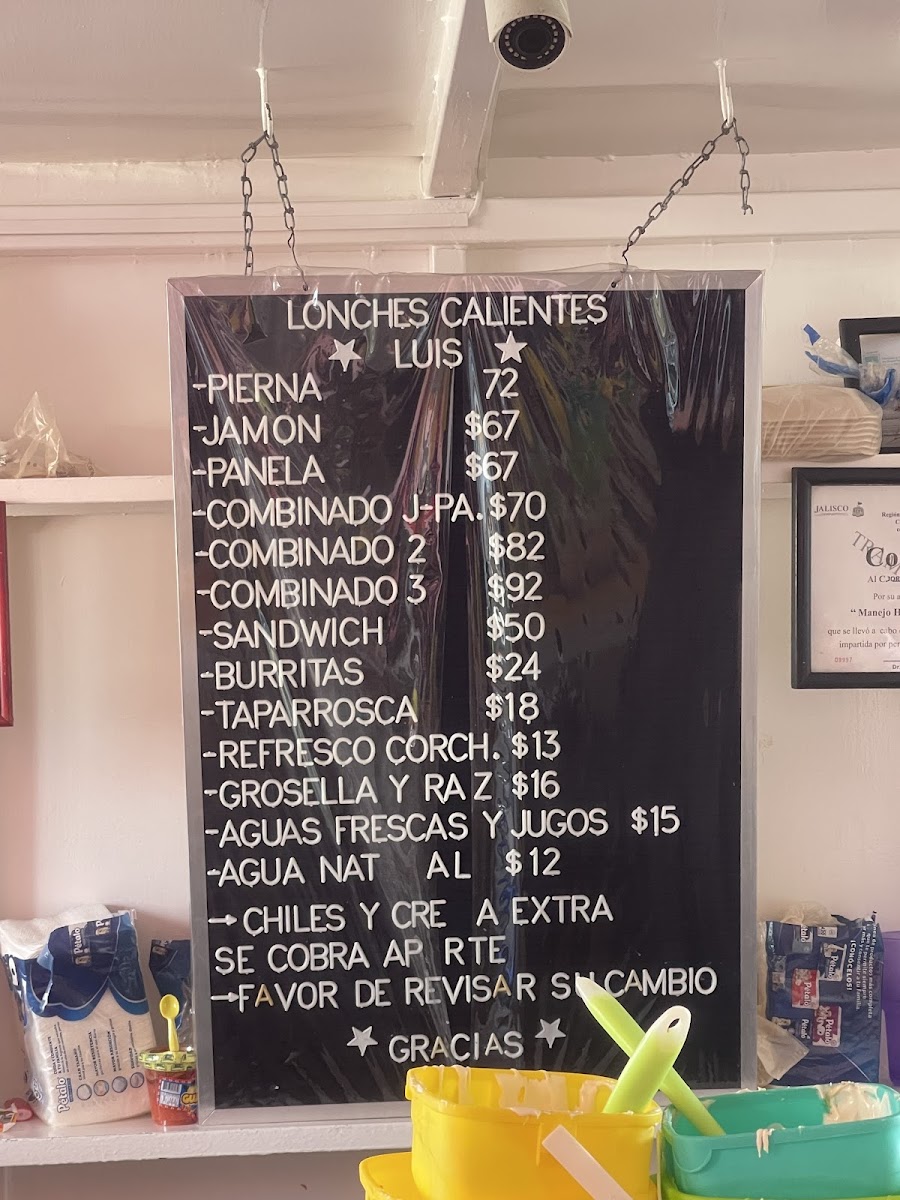 LONCHES CALIENTES
LUIS
-PIERNA 72
-JAMON $67
-PANELA $67
-COMBINADO J-PA. $70
-COMBINADO 2 $82
-COMBINADO 3 $92
-SANDWICH $50
-BURRITAS $24
-TAPARROSCA $18
-REFRESCO CORCH. $13
-GROSELLA Y RAZ $16
-AGUAS FRESCAS Y JUGOS $15
-AGUA NAT AL $12
→ CHILES Y CRE A EXTRA
SE COBRA AP RTE
→FAVOR DE REVISAR SU CAMBIO
GRACIAS
JALISCO
Por su a
"Manejo H
que se llevó a cabo
impartida por per
Pétalo
Pétalo
Pétalo
¡CONOCELOS!